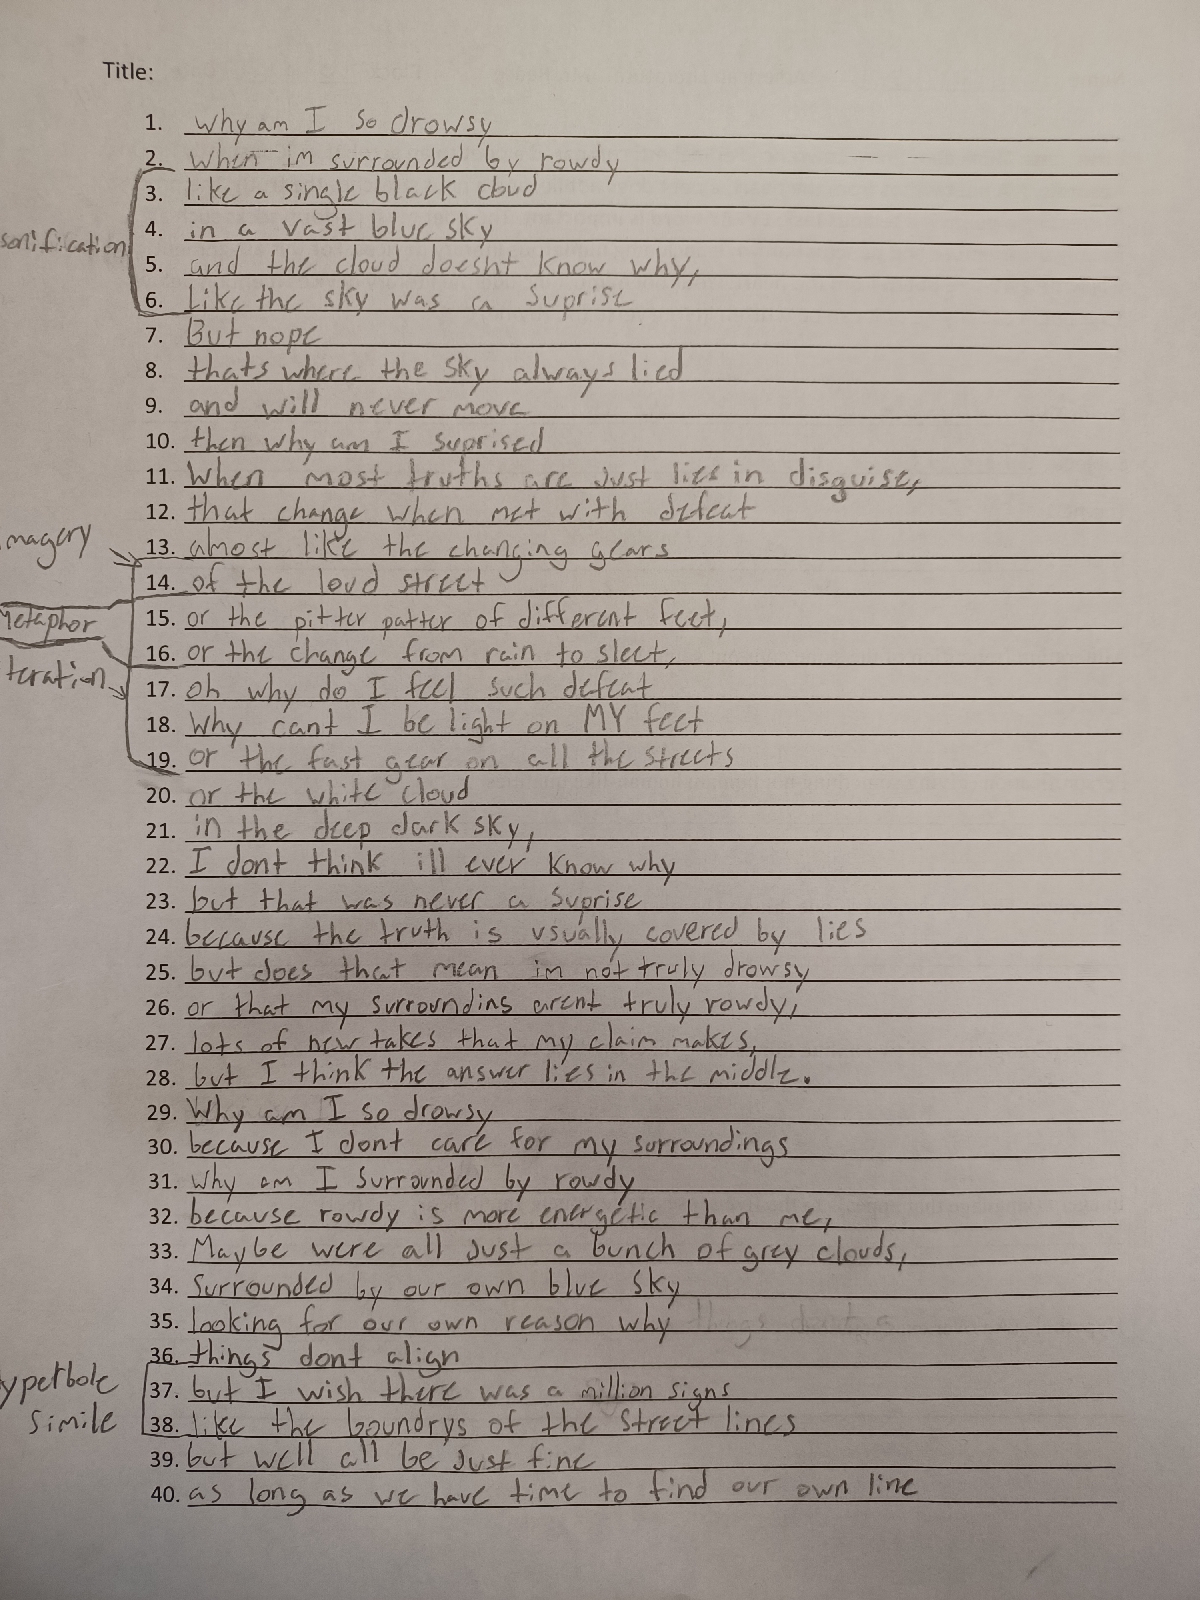 Title:
1. why am I so drowsy
2. when im surrounded by rowdy
3. like a single black cloud
4. in a vast blue sky
sonification
5. and the cloud doesnt know why,
6. Like the sky was a suprise
7. But nope
8. thats where the sky always lied
9. and will never move
10. then why am I suprised
11. When most truths are Just lies in disguise,
12. that change when met with defeat
magery
13. almost like the changing gears
14. of the loud street
Metaphor
15. or the pitter patter of different feet,
16. or the change from rain to sleet,
teration
17. oh why do I feel such defeat
18. Why cant I be light on MY feet
19. or the fast gear on all the streets
20. or the white cloud
21. in the deep dark sky,
22. I dont think ill ever know why
23. but that was never a suprise
24. because the truth is usually covered by lies
25. but does that mean im not truly drowsy
26. or that my surroundins arent truly rowdy,
27. lots of new takes that my claim makes,
28. but I think the answer lies in the middle.
29. Why am I so drowsy
30. because I dont care for my surroundings
31. Why am I Surrounded by rowdy
32. because rowdy is more energetic than me,
33. Maybe were all Just a bunch of grey clouds,
34. Surrounded by our own blue sky
35. looking for our own reason why
36. things dont align
yperbole
37. but I wish there was a million signs
simile
38. like the boundrys of the street lines
39. but well all be Just fine
40. as long as we have time to find our own line